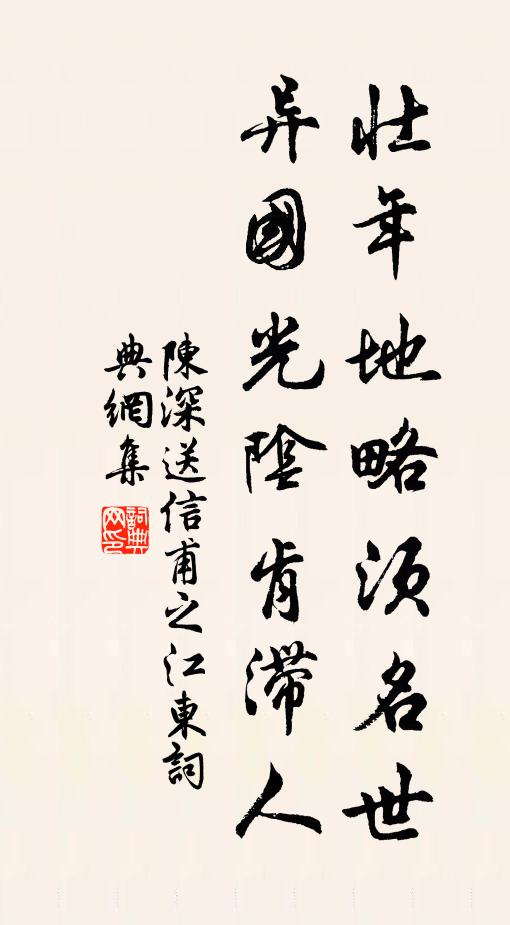 壮年地略须名世
异國光陰肯滯人
陳深送信甫之江東詞
典網集
詞典网印